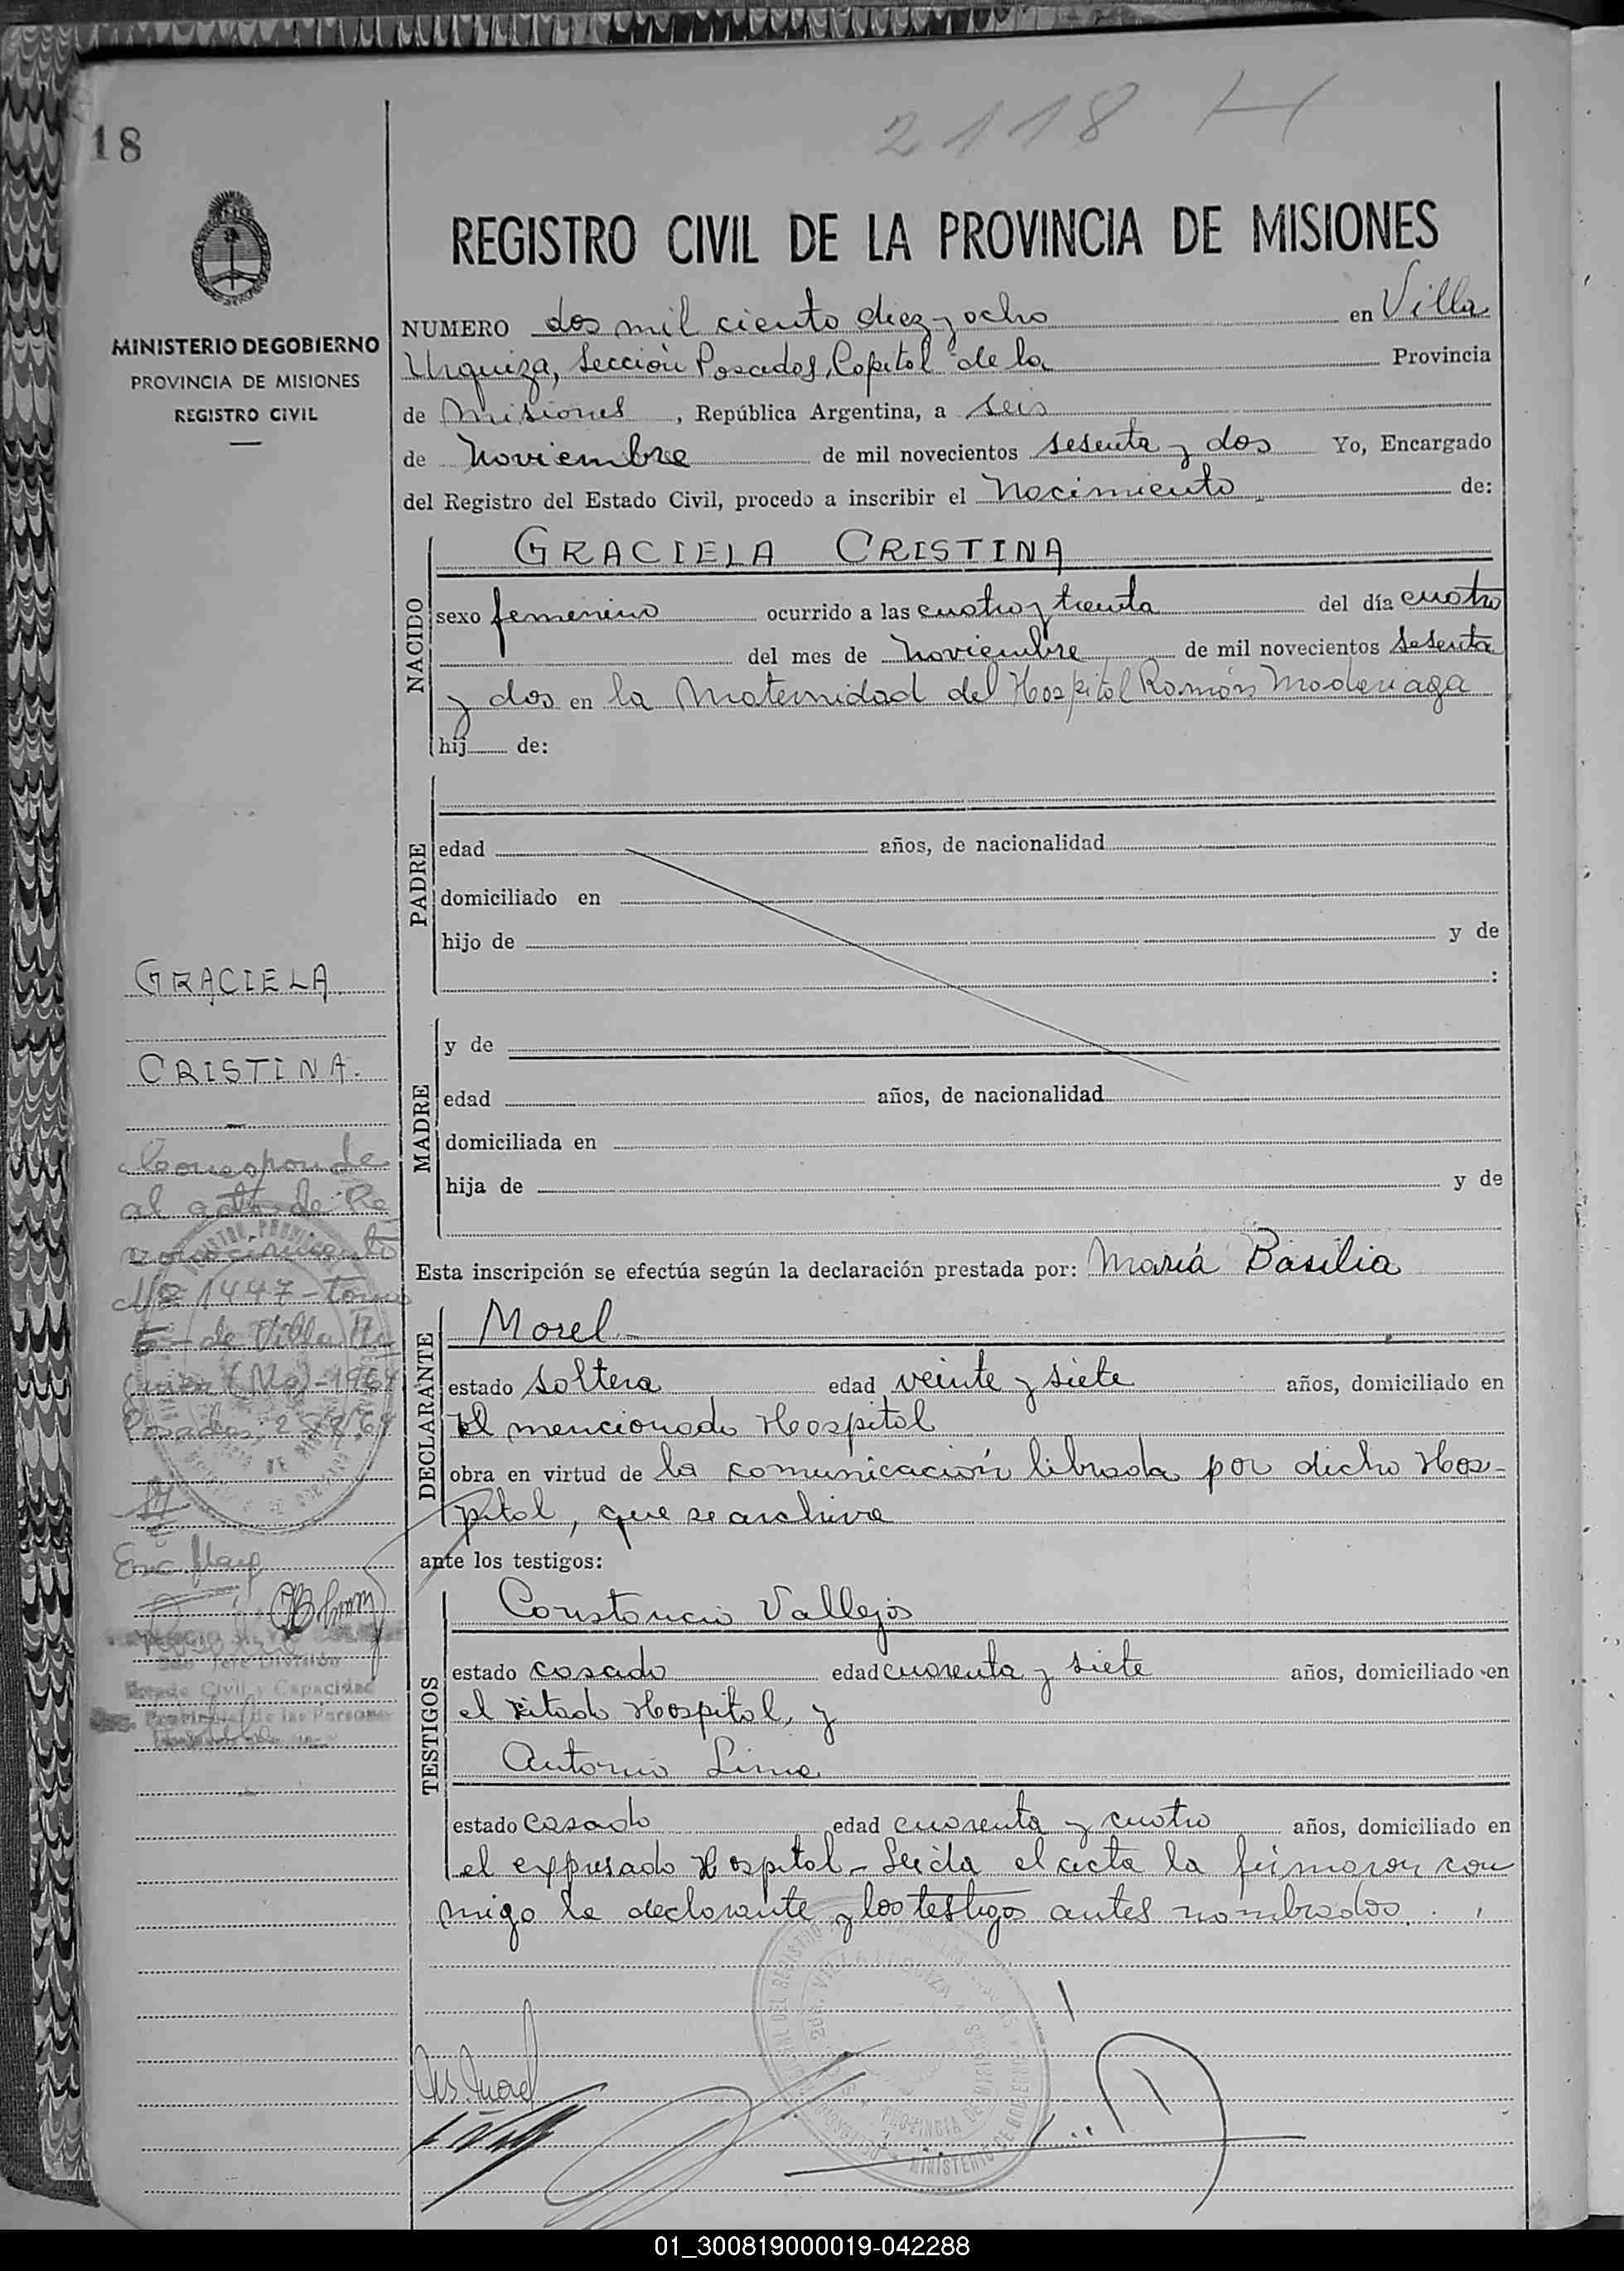 2118 H
18
REGISTRO CIVIL DE LA PROVINCIA DE MISIONES
MINISTERIO DE GOBIERNO
PROVINCIA DE MISIONES
REGISTRO CIVIL
NUMERO dos mil ciento diez y ocho en Villa
Urquiza, Sección Posadas, Capital de la Provincia
de Misiones, República Argentina, a seis
de Noviembre de mil novecientos sesenta y dos Yo, Encargado
del Registro del Estado Civil, procedo a inscribir el Nacimiento de:
NACIDO
GRACIELA CRISTINA
sexo femenino ocurrido a las cuatro y treinta del día cuatro
del mes de Noviembre de mil novecientos sesenta
y dos en la Maternidad del Hospital Ramón Madariaga
hij de:
PADRE
edad años, de nacionalidad
domiciliado en
hijo de y de
:
MADRE
y de
edad años, de nacionalidad
domiciliada en
hija de y de
GRACIELA
CRISTINA.
Corresponde
al acta de Re
conocimiento
Nº 1447 - Tomo
5 - de Villa
1964
Posadas
Esta inscripción se efectúa según la declaración prestada por: María Basilia
DECLARANTE
Morel
estado soltera edad veinte y siete años, domiciliado en
el mencionado Hospital
obra en virtud de la comunicación librada por dicho Hos-
pital, que se archiva
ante los testigos:
TESTIGOS
Constancio Vallejos
estado casado edad cuarenta y siete años, domiciliado en
el citado Hospital, y
Antonio Lima
estado casado edad cuarenta y cuatro años, domiciliado en
el expresado Hospital - Leida el acta la firmaron con
migo la declarante y los testigos antes nombrados.
Jefe División
Estado Civil y Capacidad
Provincial de las Personas
VILLA URQUIZA
PROVINCIA DE MISIONES
MINISTERIO DE GOBIERNO
01_300819000019-042288